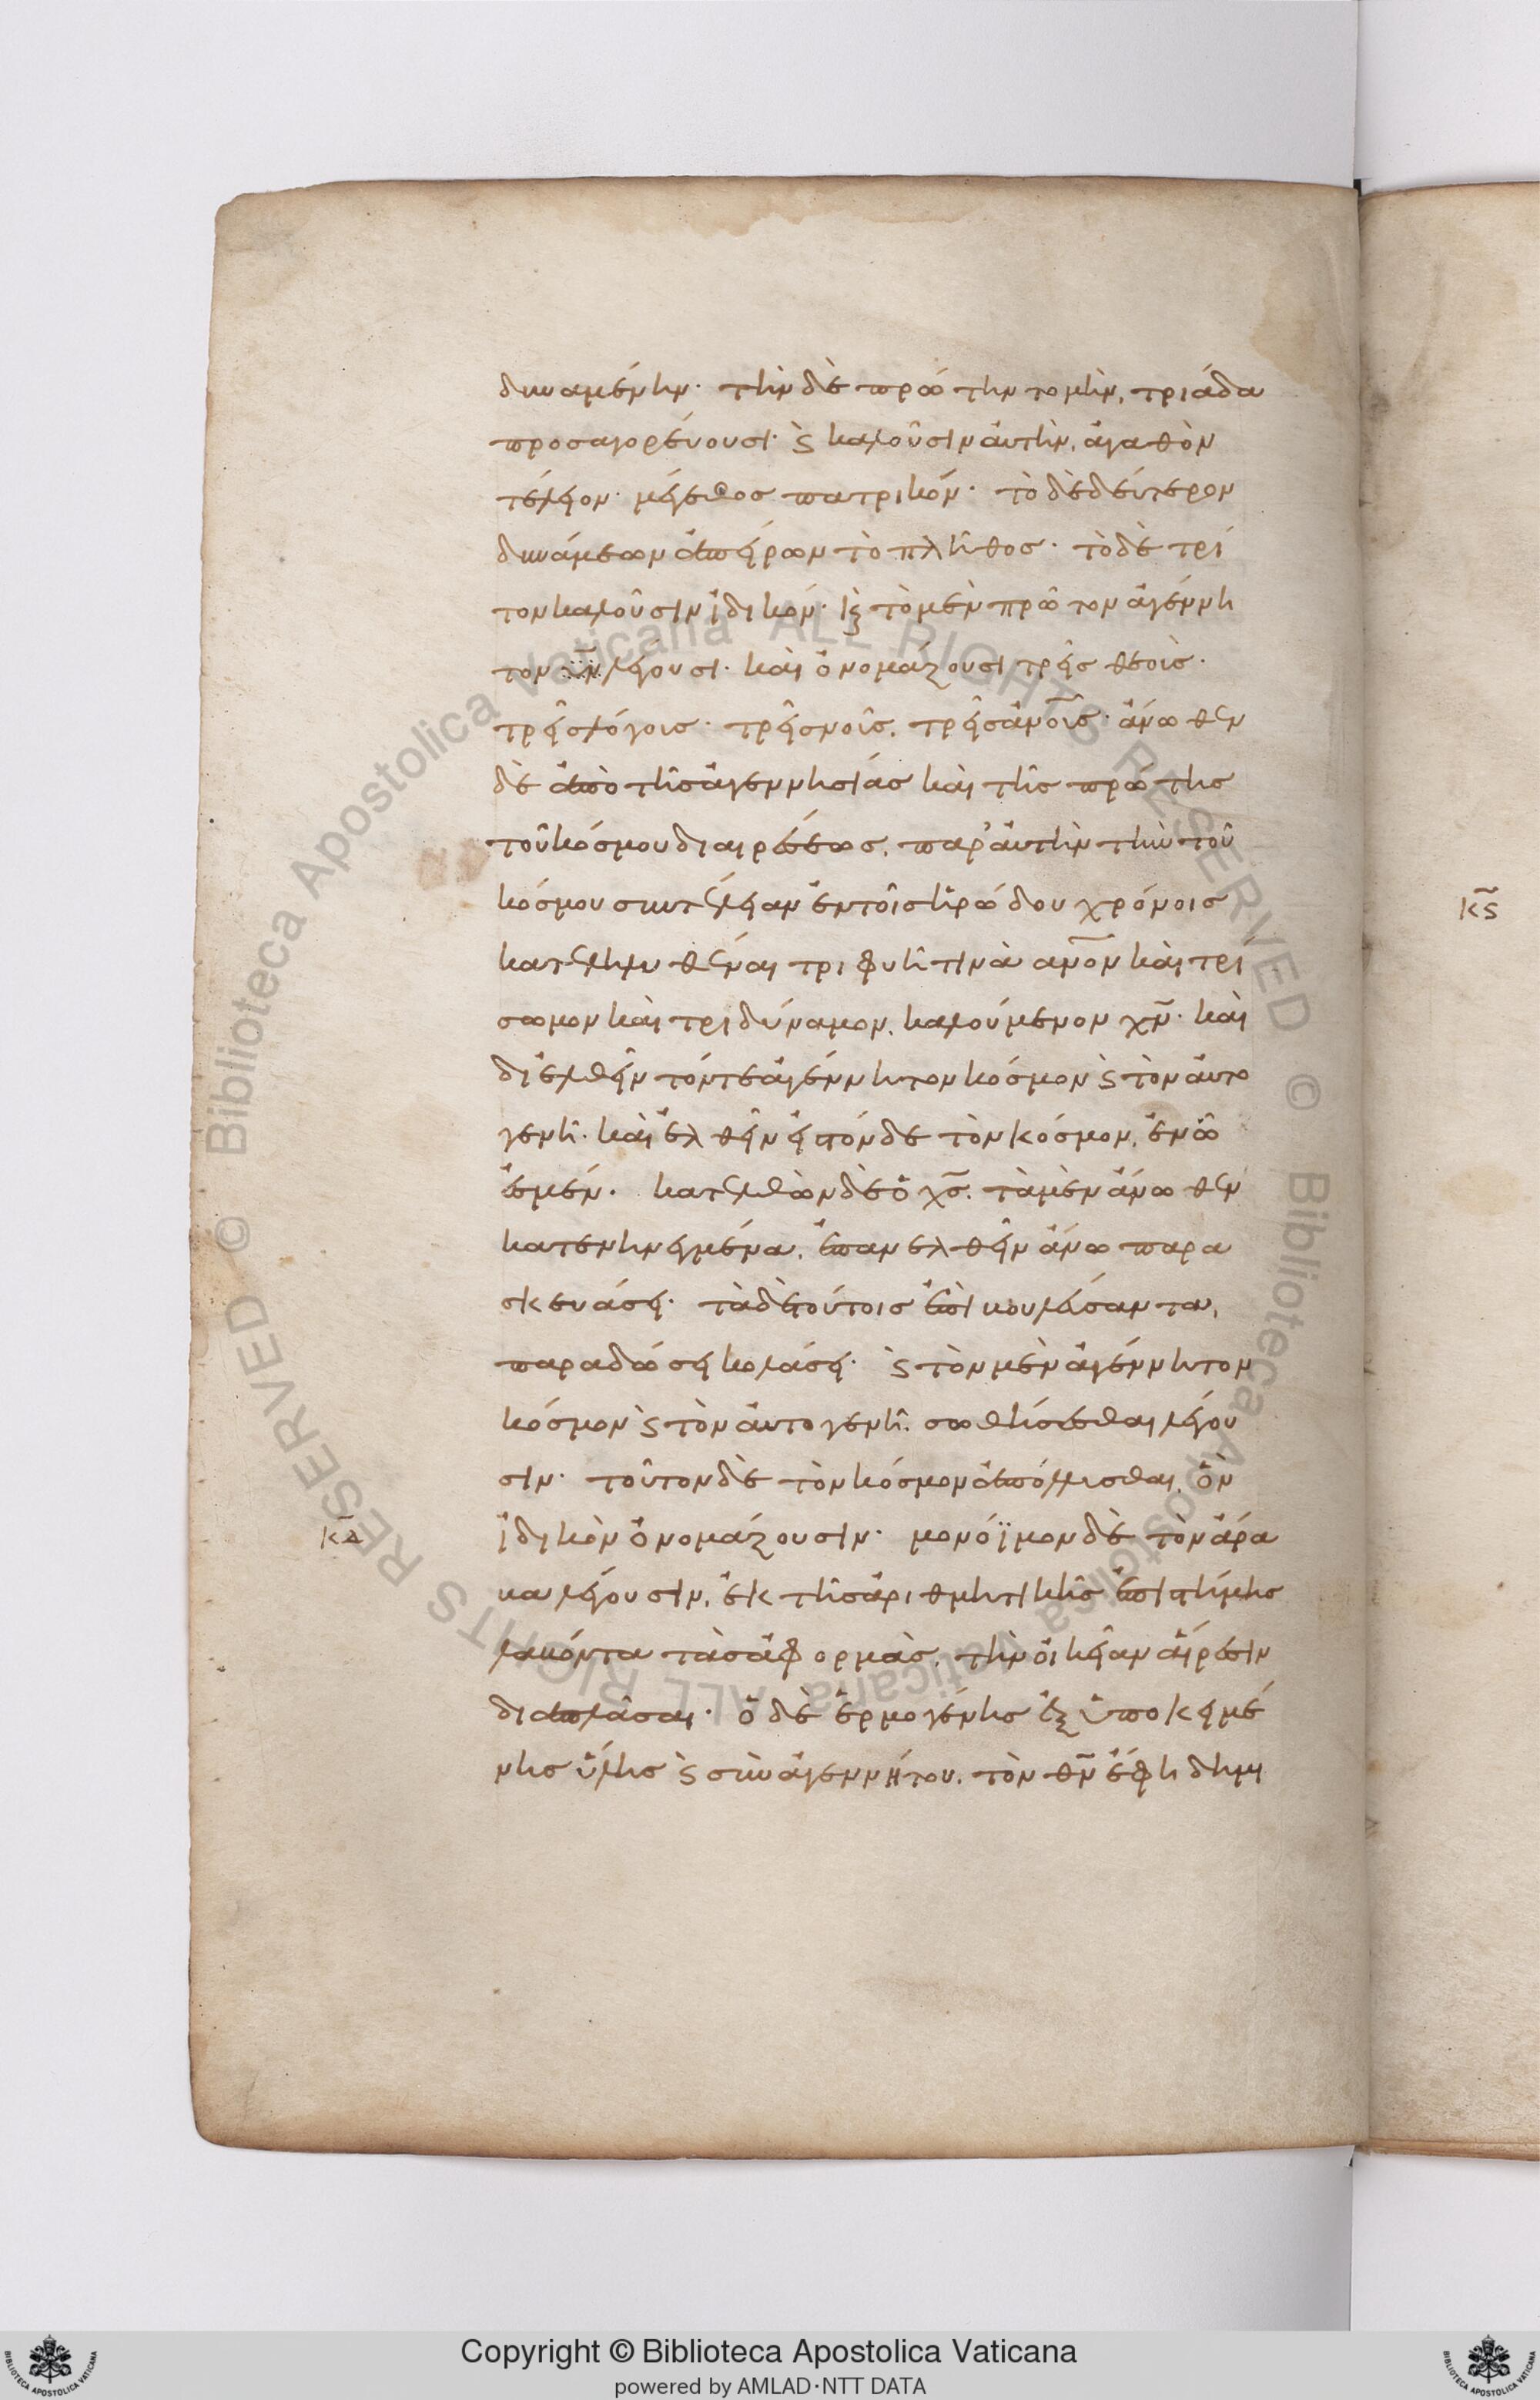 δυναμένην· τὴν δὲ πρώτην τομὴν, τριάδα
προσαγορεύουσι· ϗ καλοῦσιν ἀυτὴν, ἀγαθὸν
τέλειον· μέγεθος πατρικόν· τὸ δὲ δεύτερον
δυνάμεων ἀπείρων τὸ πλῆθος· τὸ δὲ τρί
τον καλοῦσιν ἰδικόν· ϗ τὸ μὲν πρῶτον ἀγέννη
τον λέγουσι· καὶ ὀνομάζουσι τρεῖς θεούς·
τρεῖς λόγους· τρεῖς νοῦς, τρεῖς ἀνο̅υς· ἄνωθεν
δὲ ἀπὸ τῆς ἀγεννησίας καὶ τῆς πρώτης
τοῦ κόσμου διαιρέσεως, παρ' ἀυτὴν τὴν τοῦ
κόσμου συντέλειαν ἐν τοῖς ἡρώδου χρόνοις
κατεληλυθέναι τριφυῆ τινὰ ανο̅ν καὶ τρί
σωμον καὶ τριδύναμον, καλούμενον χν̅· καὶ
διελθεῖν τόν τε ἀγέννητον κόσμον ϗ τὸν ἀυτο
γενῆ· καὶ ἐλθεῖν εἰς τόνδε τὸν κόσμον, ἐν ὧ
ἐσμέν· κατελθὼν δὲ ὁ χσ̅, τὰ μὲν ἄνωθεν
κατενηνεγμένα, ἐπανελθεῖν ἄνω παρα
σκευάσει· τὰ δὲ τούτοις ἐπιβουλεύσαντα,
παραδώσει κολάσει· ϗ τὸν μὲν ἀγέννητον
κόσμον ϗ τὸν ἀυτογενῆ, σωθήσεσθαι λέγου
σιν· τοῦτον δὲ τὸν κόσμον ἀπόλλυσθαι, ὃν
ἰδικὸν ὀνομάζουσιν· μονόϊμον δὲ τὸν ἄρα
βα λέγουσιν, ἐκ τῆς ἀριθμητικῆς ἐπιστήμης
λαβόντα τὰς ἀφορμὰς, τὴν οἰκείαν αἵρεσιν
διαπλᾶσαι· ὁ δὲ ἑρμογένης ἐξ ὑποκειμέ
νης ὕλης ϗ συναγεννήτου, τὸν θν̅ ἔφη δημι
κδ̅
κϛ̅
Copyright © Biblioteca Apostolica Vaticana
powered by AMLAD·NTT DATA